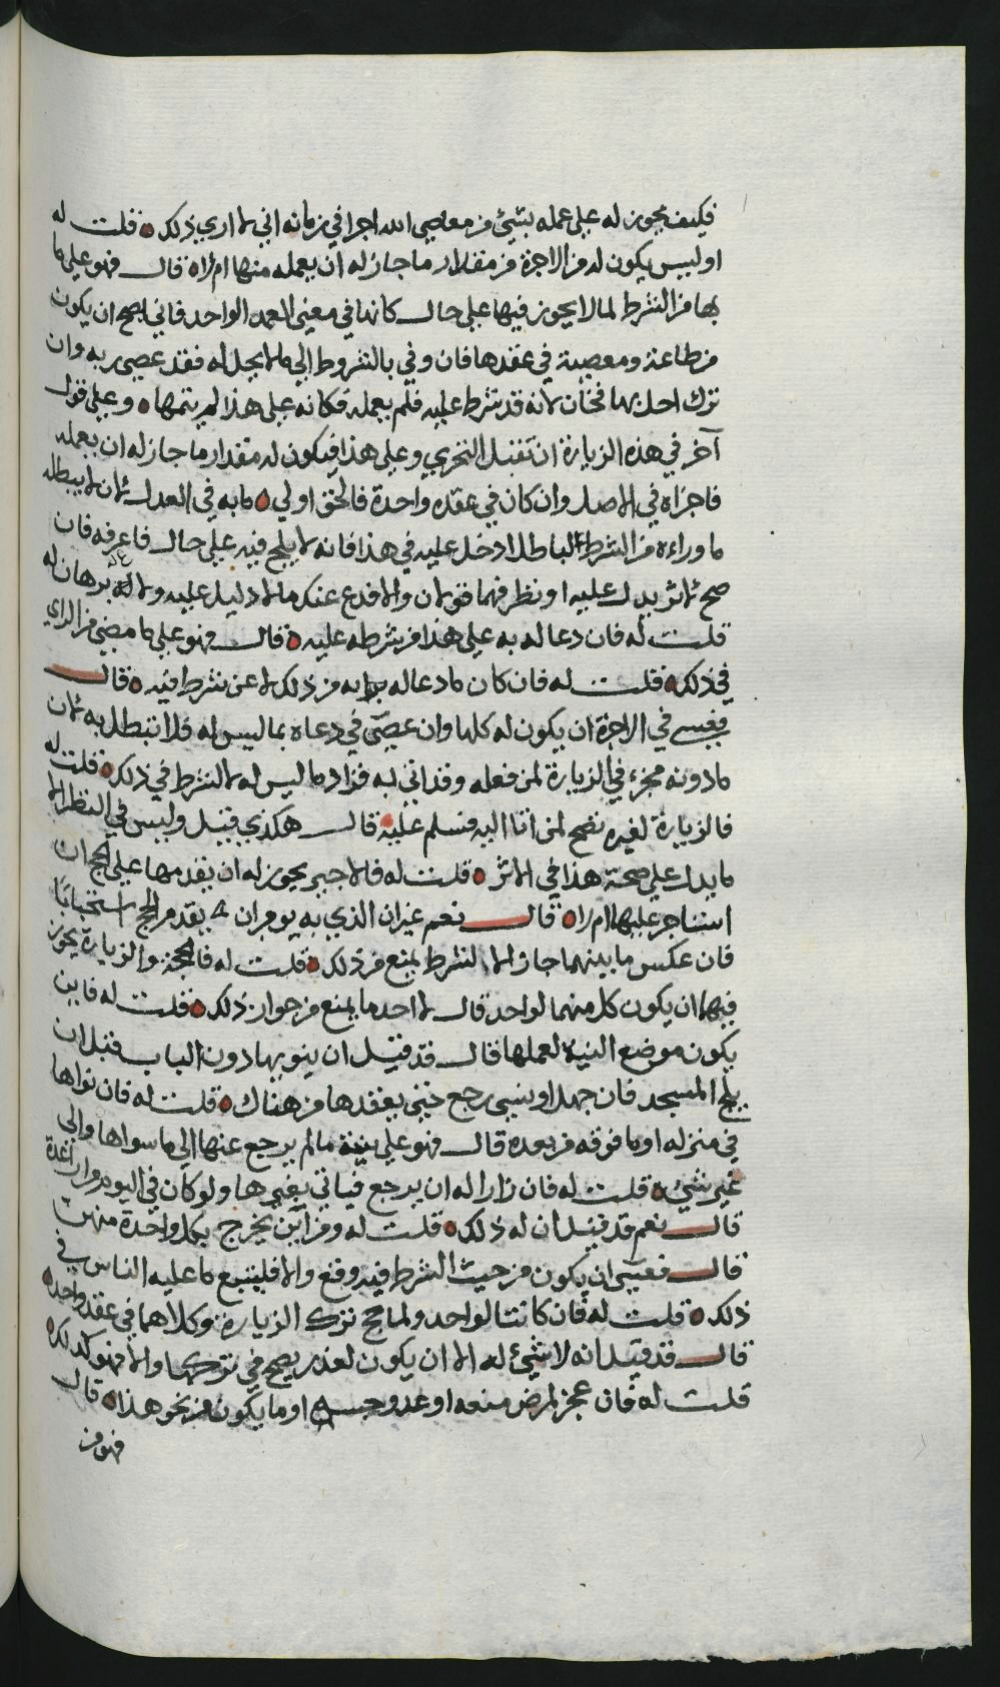 فكيف يجوز له على عمله بشيء من معاصي الله اجرا في زمانه اني لا اري ذلك قلت له
اوليس يكون له من الاجرة من مقدار ما جاز له ان يعمله منها ام لا قال فهو على ما
بها من الشرط لما لا يجوز فيها على حال كانها في معنى العمد الواحد فاني يصح ان يكون
من طاعة ومعصية في عقدها فان وفي بالشروط الي ما لا يحل له فقد عصى ربه وان
ترك احل بها فخان لانه قد شرط عليه فلم يعمله فكانه على هذا لم يتمها وعلى قول
آخر في هذه الزيارة ان تقبل التحري وعلى هذا فيكون له مقدار ما جاز له ان يعمله
فاجزاه في الاصل وان كان في عقده واحدة فالحق اولي ما به في العدل لان لا يبطله
ما وراءه من الشرط الباطل ادخل عليه في هذا فانه لا يلج فيه على حال فاعرفه فان
صح لاثر يدل عليه او نظر فهما قولان والا فدع عنك ما لا دليل عليه ولا برهان له
قلت له فان دعا له به على هذا من شرطه عليه قال فهو على ما مضى من الراي
في ذلك قلت له فان كان ما دعا له به من ذلك لا عن شرط فيه قال
فعسى في الاجرة ان يكون له كلها وان عصى في دعاه بما ليس له فلا تبطل به لان
ما دونه مجزء في الزيارة لمن فعله وقد اتى به فزاد ما ليس له لا لشرط في ذلك قلت له
فالزيارة لغيره تصح لمن اتا اليه فسلم عليه قال هكذي قيل وليس في النظر الا
ما يدل على صحة هذا في الاثر قلت له فالاجير يجوز له ان يقدمها على الحج ان
استاجر عليها ام لا قال نعم غير ان الذي به يومر ان يقدم الحج استحبابا
فان عكس ما بينهما جاز الا لشرط يمنع من ذلك قلت له فالحجة والزيارة يجوز
فيهما ان يكون كل منهما لواحد قال لا احد ما يمنع من جواز ذلك قلت له فاين
يكون موضع النية لعملها قال قد قيل ان ينو بها دون الباب قبل ان
يلج المسجد فان جهل او نسي رجع حتى يعقدها من هناك قلت له فان نواها
في منزله او ما فوقه من بعده قال فهو على نيته ما لم يرجع عنها الي ما سواها والى
غير شيء قلت له فان زار اله ان يرجع فياتي بغيرها ولو كان في اليوم مرارا عدة
قال نعم قد قيل ان له ذلك قلت له ومن اين يخرج بكل واحدة منهن
قال فعسى ان يكون من حيث الشرط فيه وقع والا فليتبع ما عليه الناس في
ذلك قلت له فان كانتا لواحد ولما حج ترك الزيارة وكلاهما في عقد واحدة
قال قد قيل انه لا شيء له الا ان يكون لعذر يصح في تركها والا فهو كذلك
قلت له فان عجز لمرض منعه او عدو حبسه او ما يكون من نحو هذا قال
فهو من